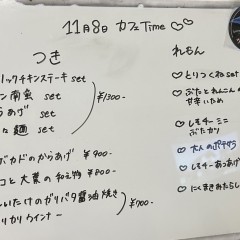 11月8日 カフェTime ♡♡
つき
リックチキンステーキ set
ン南蛮 set
らあげ set
麺 set
¥1300-
バカドのからあげ ¥900-
コと大葉の和え物 ¥800-
いたけのガリバタ醤油焼き
リカリウインナー
¥700-
れもん
♡ とりつくねset
♡ ぶたとれんこんの
甘辛いため
♡ しモチーミニ
ぶたカツ
♡ 大人のポテサラ
♡ しモチーあつあげ
♡ にくまきおたらし